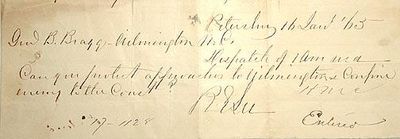 Petersburg 16 Jany '65
Genl B. Bragg - Wilmington N.C.
Dispatch of 10 am recd
Can you protect approaches to Wilmington & Confine
enemy to the Coast
R E Lee
Entered